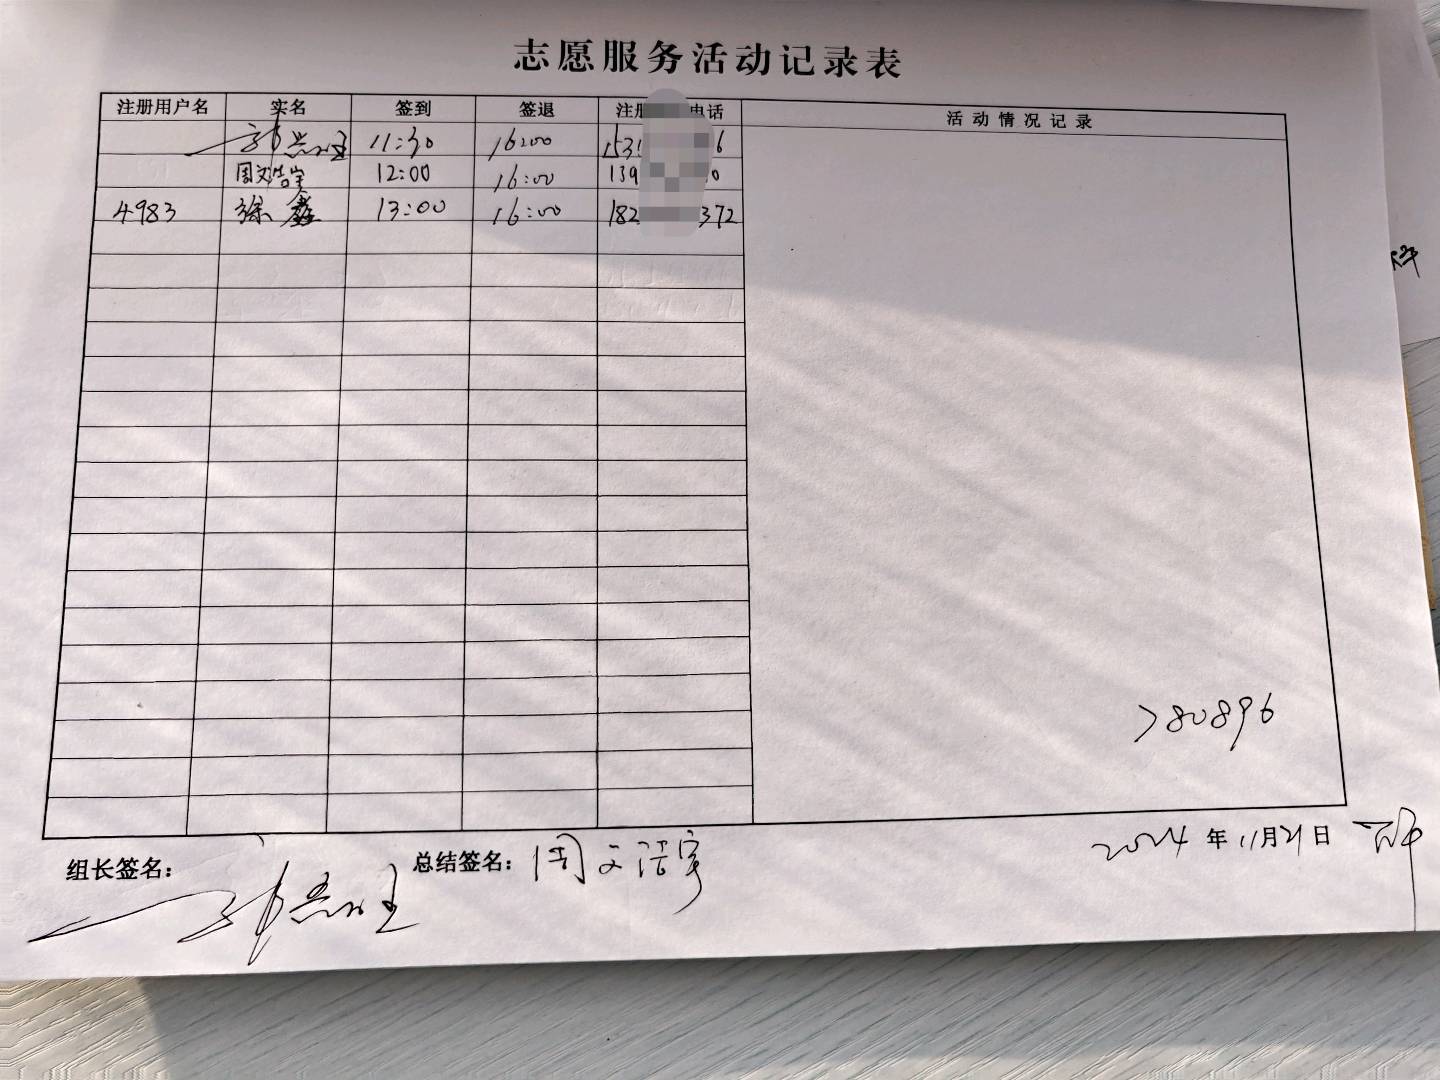 志愿服务活动记录表
注册用户名 实名 签到 签退 注册 电话 活动情况记录
11:30 16:00 153 6
周文浩宇 12:00 16:00 139 0
4983 徐鑫 13:00 16:00 182 372
780896
组长签名： 总结签名：周文浩宇 2024年11月21日